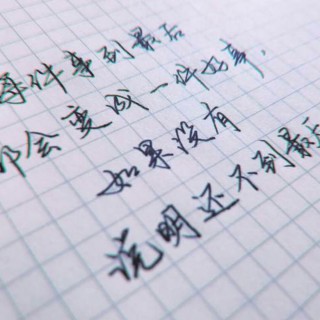 每件事到最后
都会变成一件好事，
如果没有
说明还不到最后